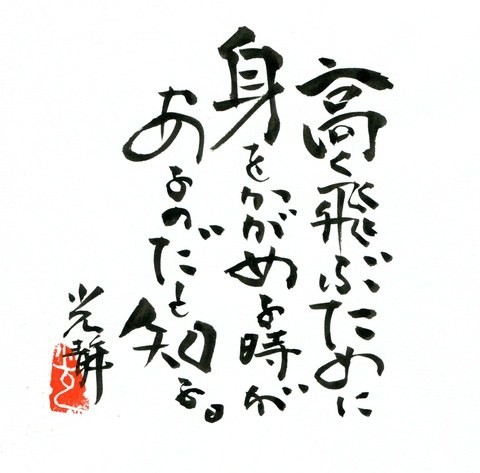 高く飛ぶために
身をかがめる時が
あるのだと知る。
光靜